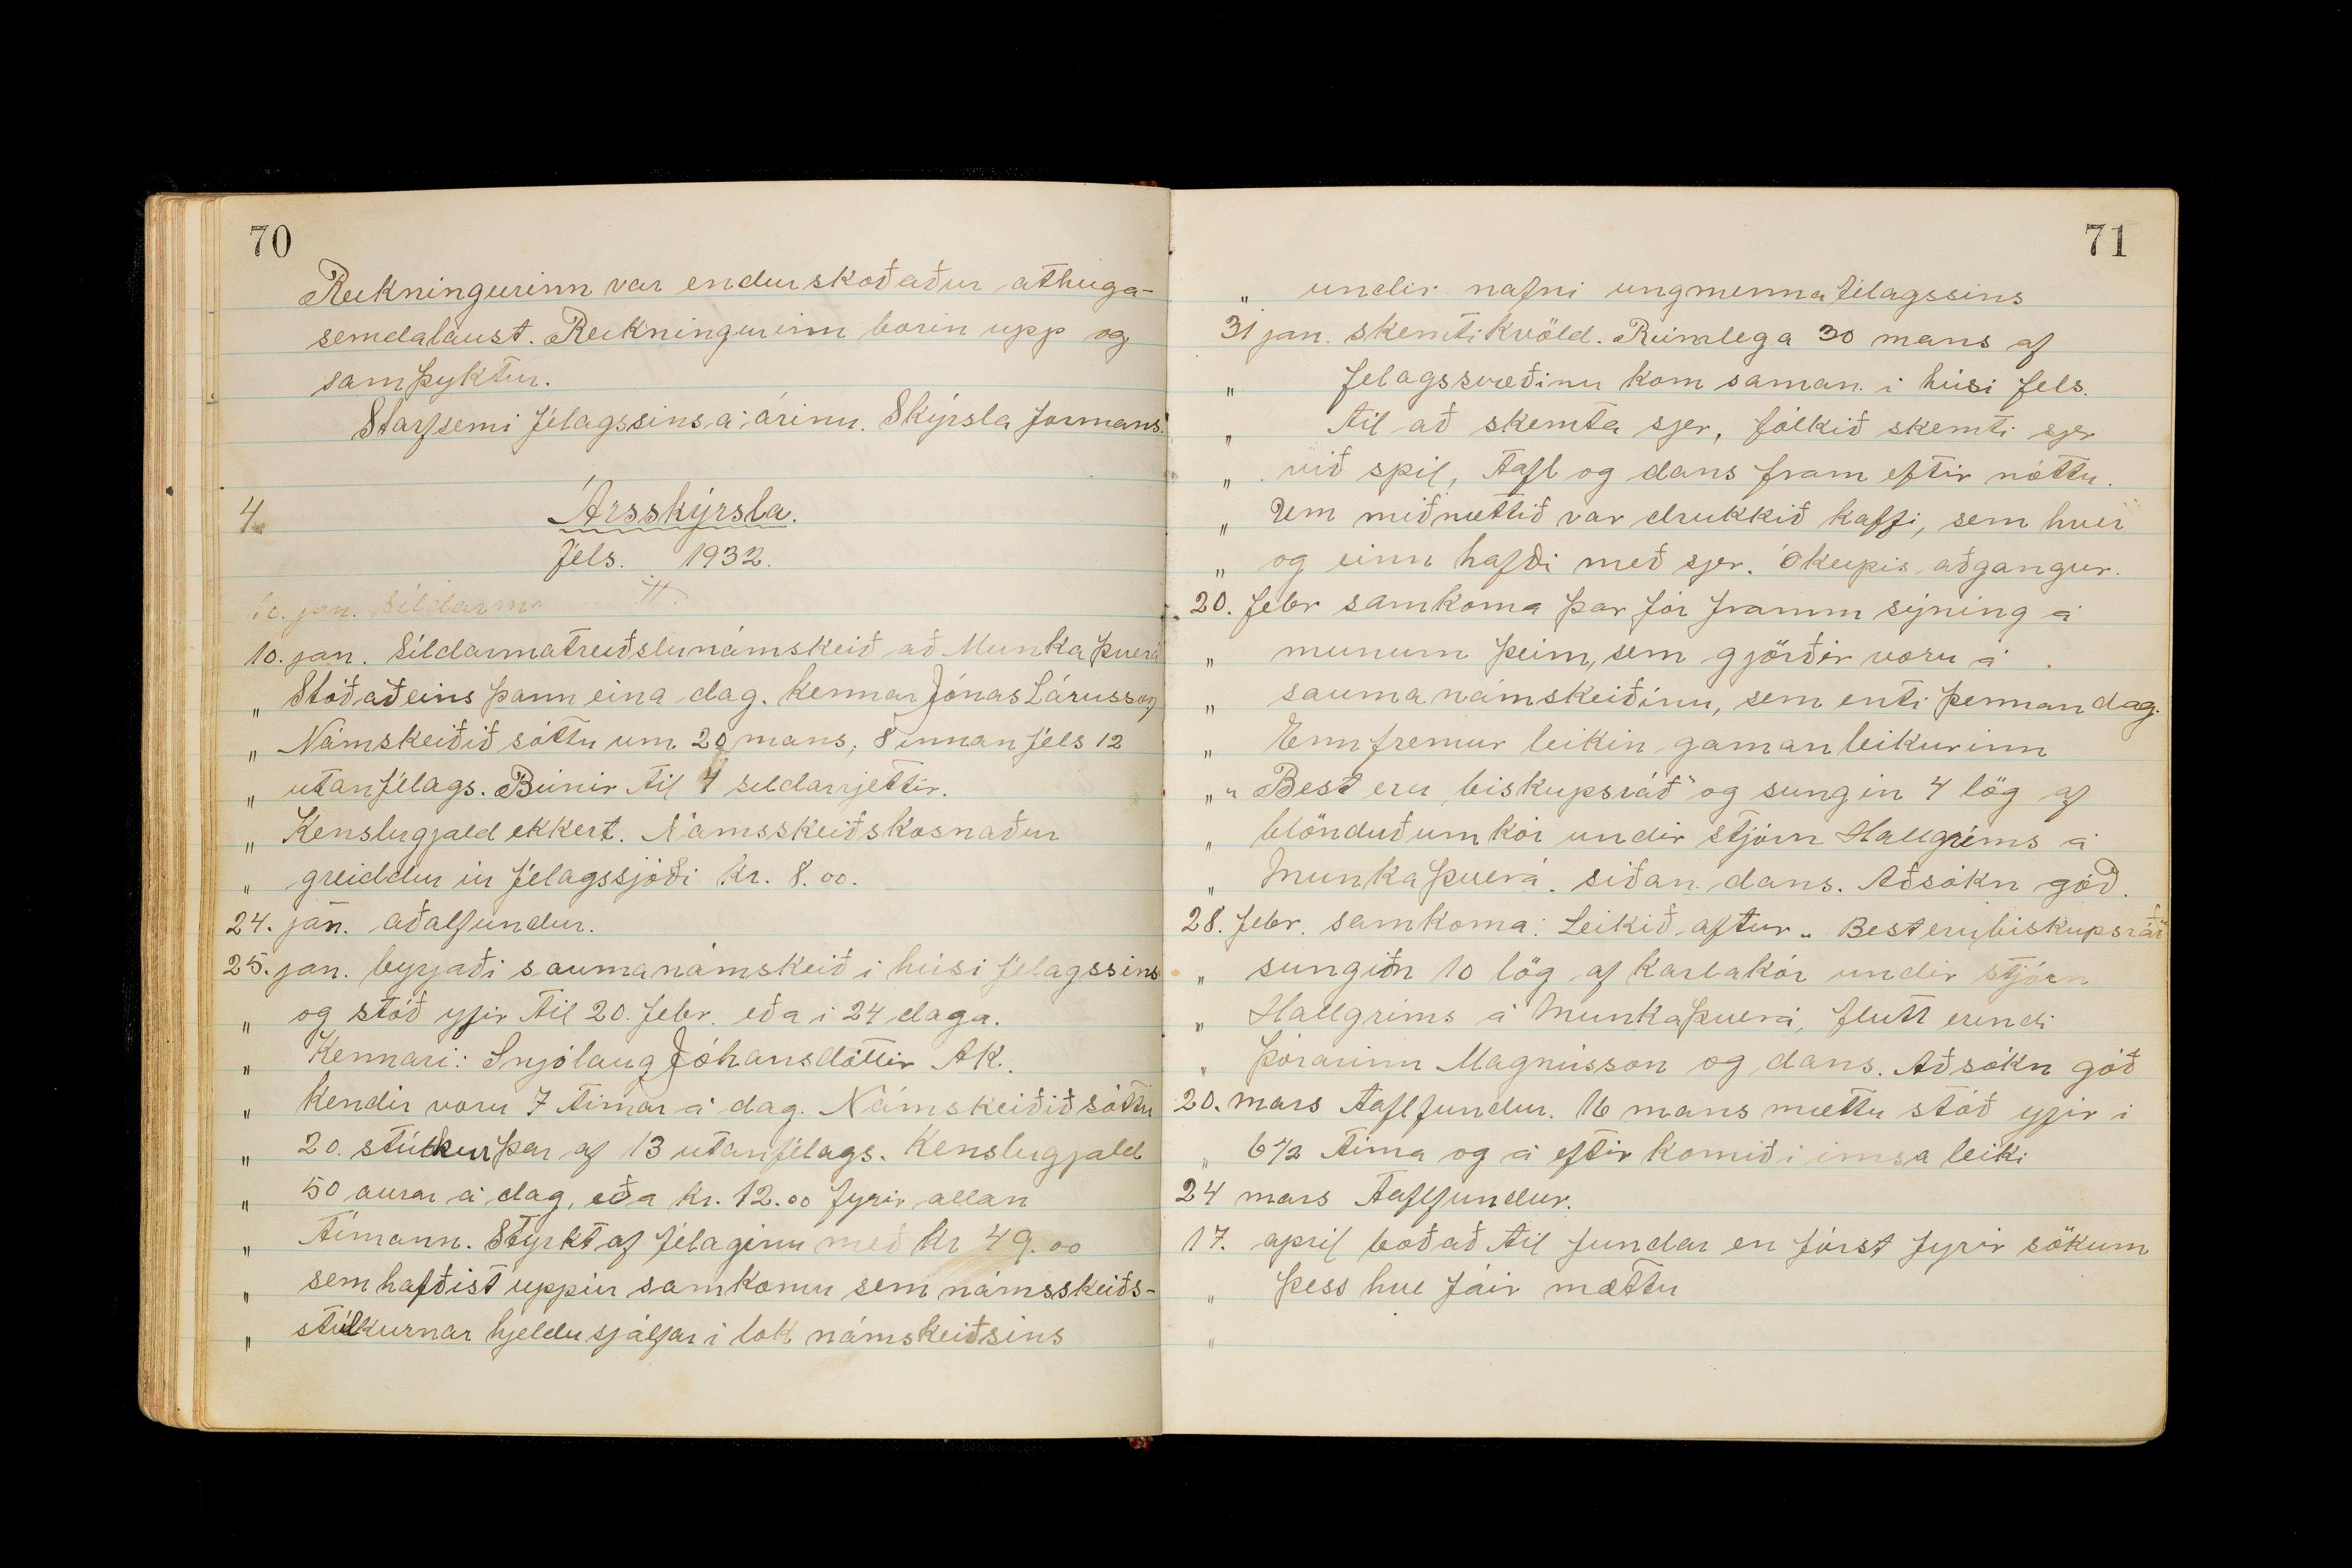 70
Reikningurinn var endurskoðaður athuga-
semdalaust. Reikningurinn borin upp og
samþyktur.
Starfsemi félagssins á árinu. Skýrsla formans:
4. Ársskýrsla.
féls. 1932.
10. jan. Síldarm
10. jan. Síldarmatreiðslunámskeið að Munkaþverá
„ Stóð aðeins þann eina dag. kennar Jónas Lárusson
„ Námskeiðið sóttu um 20 mans, 8 innan féls 12
„ utanfélags. Búnir til 4 seldarrjettir.
„ Kenslugjald ekkert. Námsskeiðskosnaður
„ greiddur úr félagssjóði kr. 8.00.
24. jan. aðalfundur.
25. jan. byrjaði saumanámskeið í húsi félagssins
„ og stóð yfir til 20. febr. eða í 24 daga.
„ Kennari: Snjólaug Jóhansdóttir AK.
„ Kendir voru 7 tímar á dag. Námskeiðið sóttu
„ 20. stúlkur þar af 13 utanfélags. Kenslugjald
„ 50 aurar á dag, eða kr. 12.00 fyrir allan
„ tímann. Styrkt af félaginu með kr 49.00
„ sem hafðist uppúr samkomu sem námsskeiðs-
„ stúlkurnar hjeldu sjálfar í lok námskeiðsins
71
„ undir nafni ungmennafélagssins
31 jan. skemtikvöld. Rúmlega 30 mans af
„ felagssvæðinu kom saman í húsi fels.
„ til að skemta sjer, fólkið skemti sjer
„ við spil, tafl og dans fram eftir nóttu.
„ Um miðnættið var drukkið kaffi, sem hver
„ og einn hafði með sjer. Ókeypis aðgangur.
20. febr samkoma þar fór framm sýning á
„ munum þeim, sem gjörðir voru á
„ saumanámskeiðinu, sem enti þennan dag.
„ Ennfremur leikin gamanleikurinn
„ „Best eru biskupsráð" og sungin 4 lög af
„ blönduðum kór undir stjórn Hallgríms á
„ Munkaþverá. síðan dans. Aðsókn góð.
28. febr. samkoma: Leikið aftur „Best eru biskupsráð"
„ sungiðn 10 lög af karlakór undir stjórn
„ Hallgríms á Munkaþverá, flutt erindi
„ Þórarinn Magnússon og dans. Aðsókn góð
20. mars taflfundur. 16 mans mættu stóð yfir í
„ 6 1/2 tíma og á eftir komið í imsa leiki
24 mars taflfundur.
17. apríl boðað til fundar en fórst fyrir sökum
„ þess hve fáir mættu
„